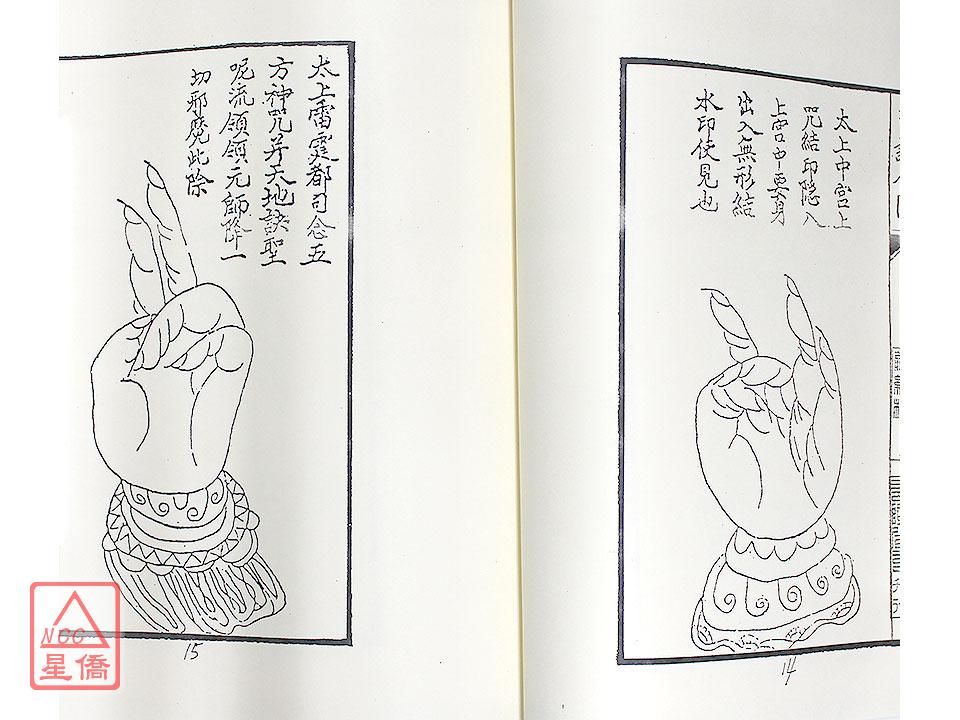 太上中宮上
咒結印隐入
出入無形結
水印使見也
14
太上雷霆都司念五
方神咒并天地訣聖
呢流領領元師降一
切邪魔此除
15
NCC
星僑